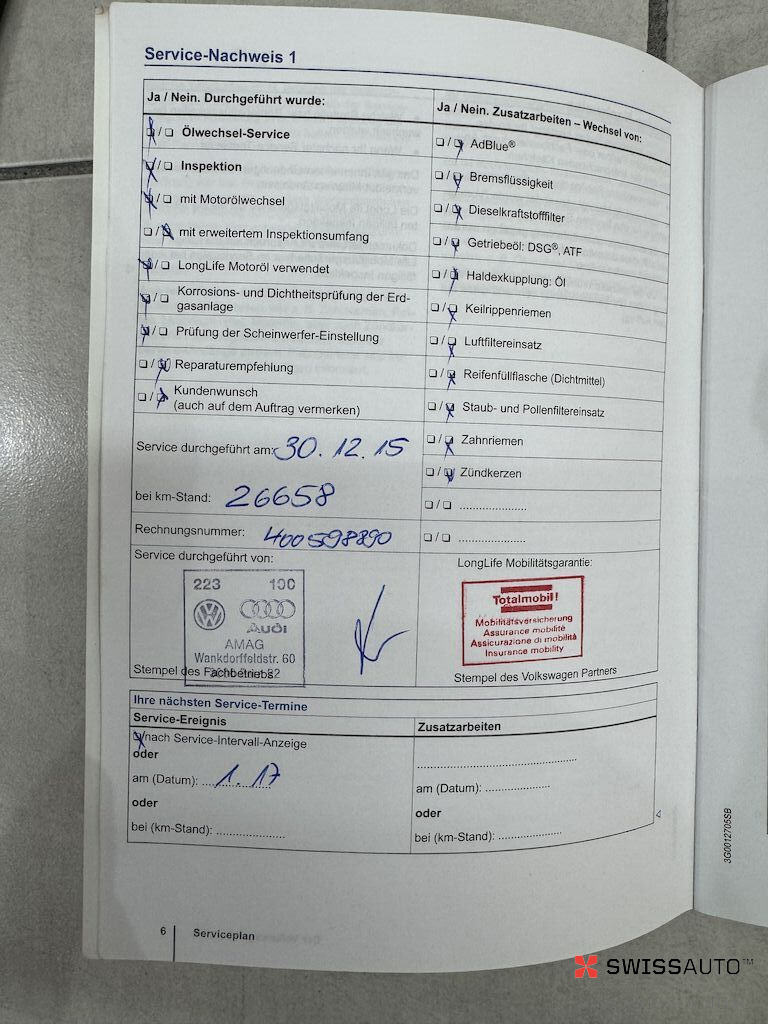 Service-Nachweis 1
Ja / Nein. Durchgeführt wurde:
❏/❏ Ölwechsel-Service
❏/❏ Inspektion
❏/❏ mit Motorölwechsel
❏/❏ mit erweitertem Inspektionsumfang
❏/❏ LongLife Motoröl verwendet
❏/❏ Korrosions- und Dichtheitsprüfung der Erd-
gasanlage
❏/❏ Prüfung der Scheinwerfer-Einstellung
❏/❏ Reparaturempfehlung
❏/❏ Kundenwunsch
(auch auf dem Auftrag vermerken)
Service durchgeführt am: 30.12.15
bei km-Stand: 26658
Rechnungsnummer: 400598890
Service durchgeführt von:
223 100
Audi
AMAG
Wankdorffeldstr. 60
Stempel des Fachbetriebs
Ja / Nein. Zusatzarbeiten – Wechsel von:
❏/❏ AdBlue®
❏/❏ Bremsflüssigkeit
❏/❏ Dieselkraftstofffilter
❏/❏ Getriebeöl: DSG®, ATF
❏/❏ Haldexkupplung: Öl
❏/❏ Keilrippenriemen
❏/❏ Luftfiltereinsatz
❏/❏ Reifenfüllflasche (Dichtmittel)
❏/❏ Staub- und Pollenfiltereinsatz
❏/❏ Zahnriemen
❏/❏ Zündkerzen
❏/❏ .....................
❏/❏ .....................
LongLife Mobilitätsgarantie:
Totalmobil!
Mobilitätsversicherung
Assurance mobilité
Assicurazione di mobilità
Insurance mobility
Stempel des Volkswagen Partners
Ihre nächsten Service-Termine
Service-Ereignis
❏ nach Service-Intervall-Anzeige
oder
am (Datum): 1.17
oder
bei (km-Stand): .....................
Zusatzarbeiten
.....................
am (Datum): .....................
oder
bei (km-Stand): .....................
3G0012705SB
6 Serviceplan
SWISSAUTO™